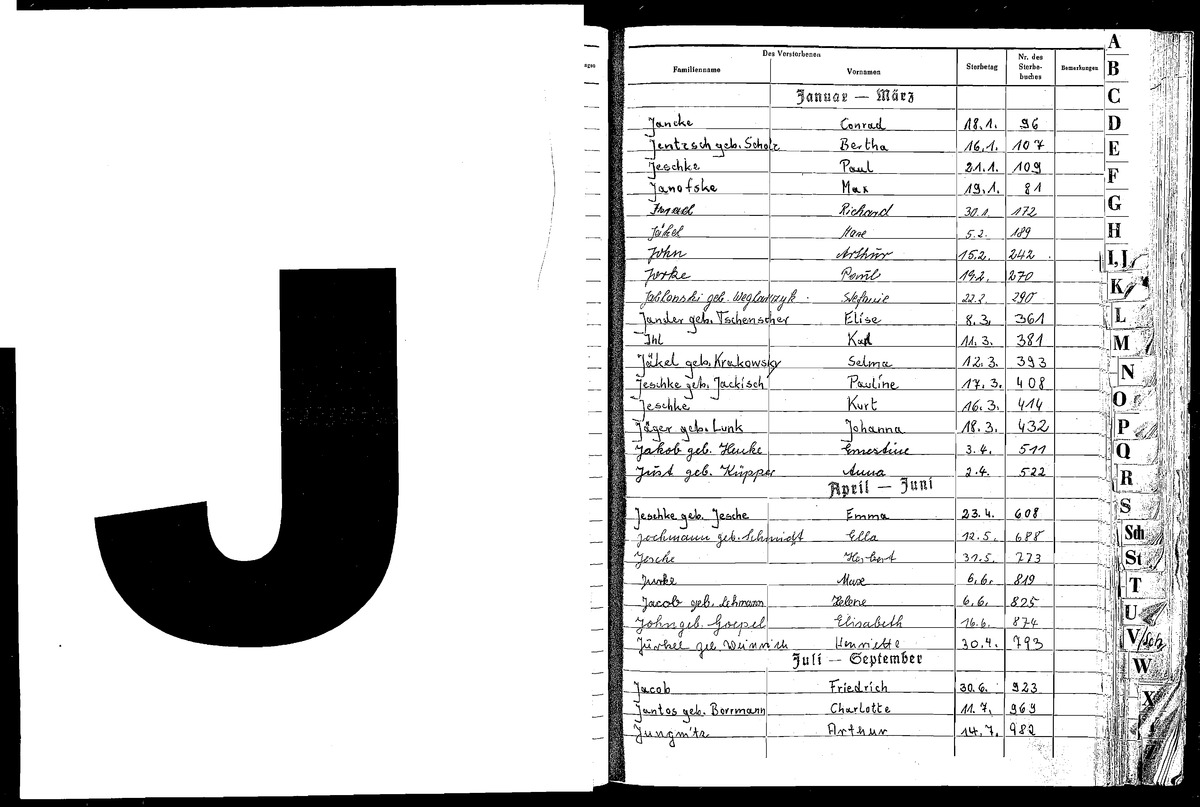 J
Des Verstorbenen
Familienname Vornamen Sterbetag Nr. des Sterbebuches Bemerkungen
Januar — März
Jancke Conrad 18.1. 96
Jentzsch geb. Scholz Bertha 16.1. 107
Jeschke Paul 21.1. 109
Janofske Max 19.1. 81
Israel Richard 30.1. 172
Jäkel 5.2. 189
John Arthur 15.2. 242
Jorke Paul 19.2. 270
Jablonski geb. Stefanie 22.2. 290
Jander geb. Tschenscher Elise 8.3. 361
Ihl Karl 11.3. 381
Jäkel geb. Krakowsky Selma 12.3. 393
Jeschke geb. Jackisch Pauline 17.3. 408
Jeschke Kurt 16.3. 414
Jäger geb. Lunk Johanna 18.3. 432
Jakob geb. Ernestine 3.4. 511
Just geb. Küpper Anna 2.4. 522
April — Juni
Jeschke geb. Jesche Emma 23.4. 608
Jochmann geb. Schmidt Ella 12.5. 688
Jesche Herbert 31.5. 773
Jurke Max 6.6. 819
Jacob geb. Lehmann Helene 6.6. 825
John geb. Goepel Elisabeth 16.6. 874
geb. Weinrich Henriette 30.4. 793
Juli — September
Jacob Friedrich 30.6. 923
Jantos geb. Borrmann Charlotte 11.7. 969
Jungnitz Arthur 14.7. 982
A
B
C
D
E
F
G
H
I, J
K
L
M
N
O
P
Q
R
S
Sch
St
T
U
V
W
X